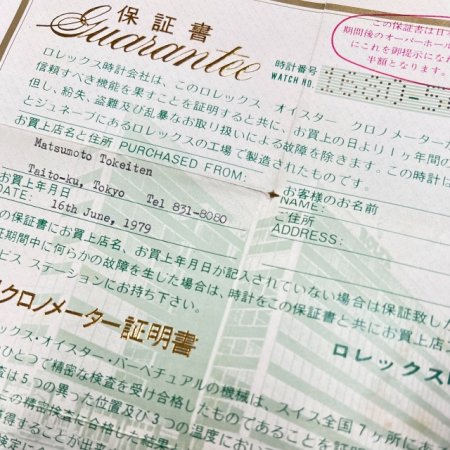 保証書
Guarantee
この保証書は日本
期間後のオーバーホール
にこれを御提示になれ
半額となります。
時計番号
WATCH NO.
ロレックス時計会社は、このロレックス オイスター クロノメーターが
信頼すべき機能を果すことを証明すると共に、お買上の日より1ヶ年間の
但し、紛失、盗難及び乱暴なお取り扱いによる故障を除きます。この時計は
とジュネーブにあるロレックスの工場で製造されたものです。
お買上店名と住所 PURCHASED FROM:
Matsumoto Tokeiten
Taito-ku, Tokyo Tel 831-8080
お買上年月日
DATE: 16th June, 1979
お客様のお名前
NAME:
ご住所
ADDRESS:
の保証書にお買上店名、お買上年月日が記入されていない場合は保証致し
証期間中に何らかの故障を生した場合は、時計をこの保証書と共にお買上店
ビス ステーションにお持ち下さい。
ロレックス
クロノメーター証明書
ックス・オイスター・パーペチュアルの機械は、スイス全国7ヶ所にあ
ひとつで精密な検査を受け合格したものであることを証明
査は5つの異った位置及び3つの温度におい
この精密検査に合格した結果
得することが出来
検定に合